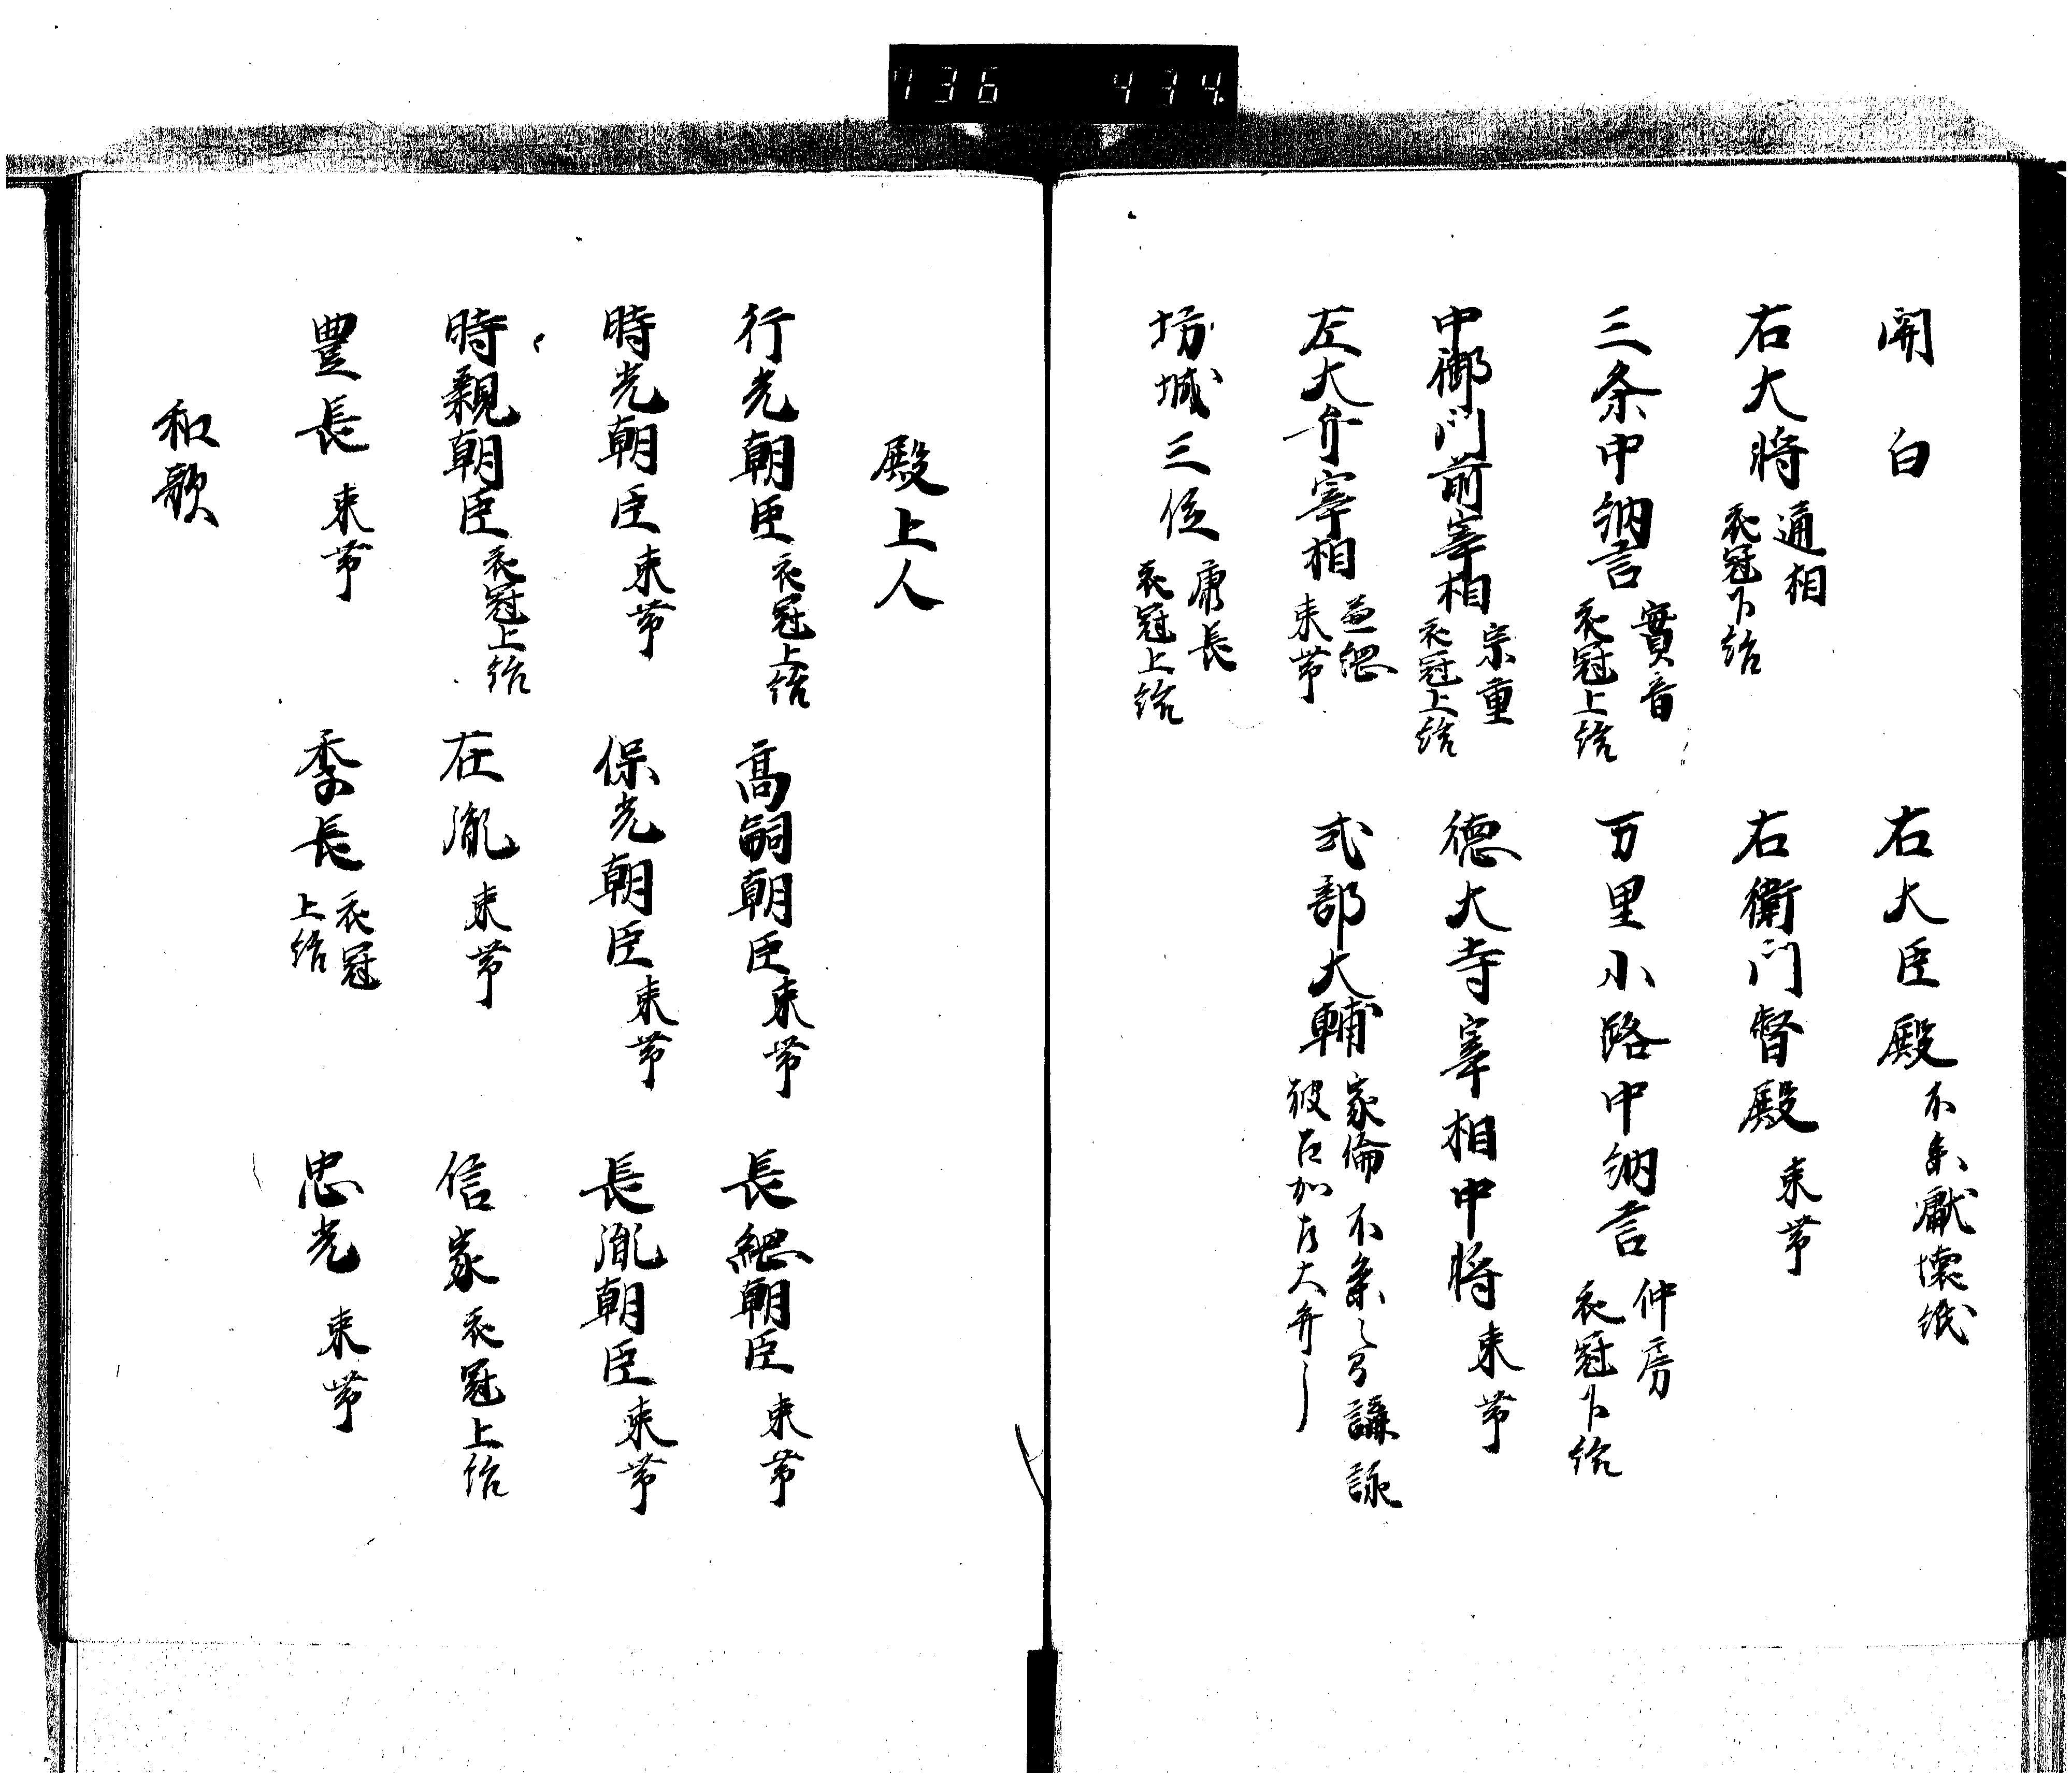 736 434
関白　右大臣殿 不参献懐紙
右大将 通相 衣冠下絬　右衛門督殿 束帯
三条中納言 實音 衣冠上絬　万里小路中納言 仲房 衣冠下絬
中御門前宰相 宗重 衣冠上絬　德大寺宰相中将 束帯
左大弁宰相 束帯　式部大輔 家倫
坊城三位 衣冠上絬
殿上人
行光朝臣 衣冠上絬　高嗣朝臣 束帯　長綱朝臣 束帯
時光朝臣 束帯　保光朝臣 束帯　長胤朝臣 束帯
時親朝臣 衣冠上絬　在胤 束帯　信家 衣冠上絬
豊長 束帯　季長 衣冠上絬　忠光 束帯
和歌